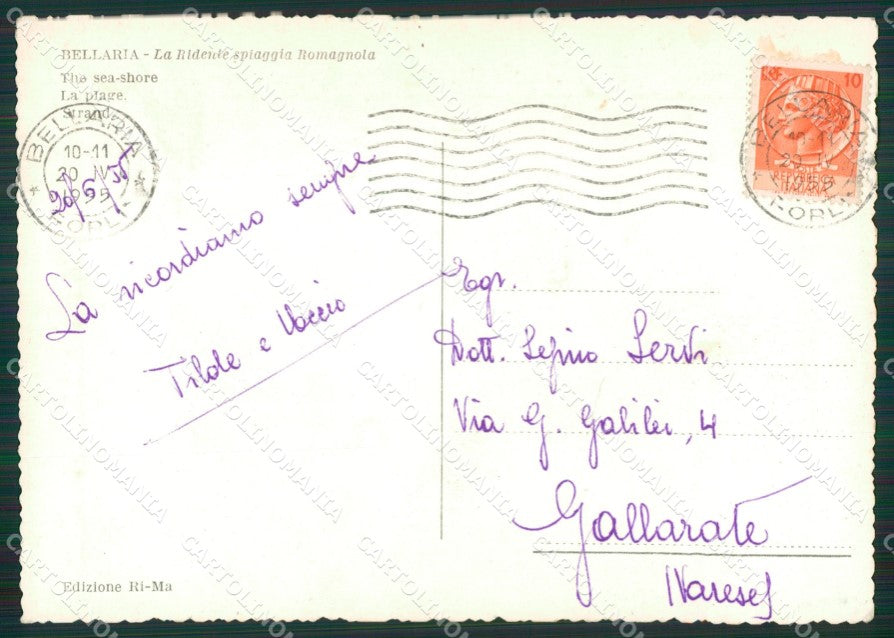 BELLARIA - La Ridente spiaggia Romagnola
The sea-shore
La plage.
Strand
BELLARIA
10-11
1955
FORLI
20/6/55
La ricordiamo sempre
Tilde e
10
REPVBBLICA
ITALIANA
BELLARIA
FORLI
Egr.
Dott. Servi
Via G. Galilei, 4
Gallarate
(Varese)
Edizione Ri-Ma
CARTOLINOMANIA